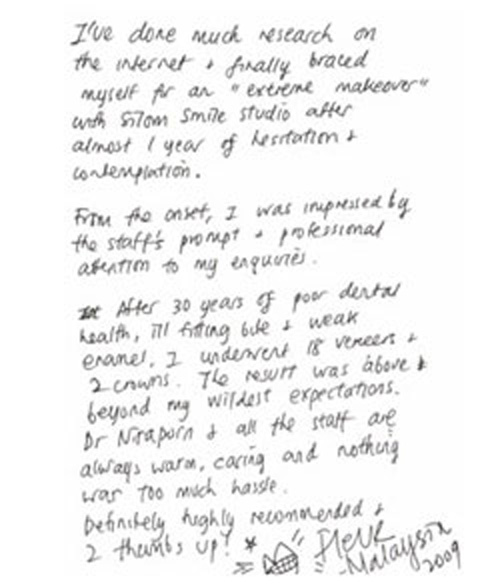 I've done much research on
the internet + finally braced
myself for an "extreme makeover"
with Silom Smile Studio after
almost 1 year of hesitation +
contemplation.
From the onset, I was impressed by
the staff's prompt + professional
attention to my enquiries.
After 30 years of poor dental
health, ill fitting bite + weak
enamel, I underwent 18 veneers +
2 crowns. The result was above &
beyond my wildest expectations.
Dr Niraporn & all the staff are
always warm, caring and nothing
was too much hassle.
Definitely highly recommended +
2 thumbs up! *
Fleur
Malaysia
2009